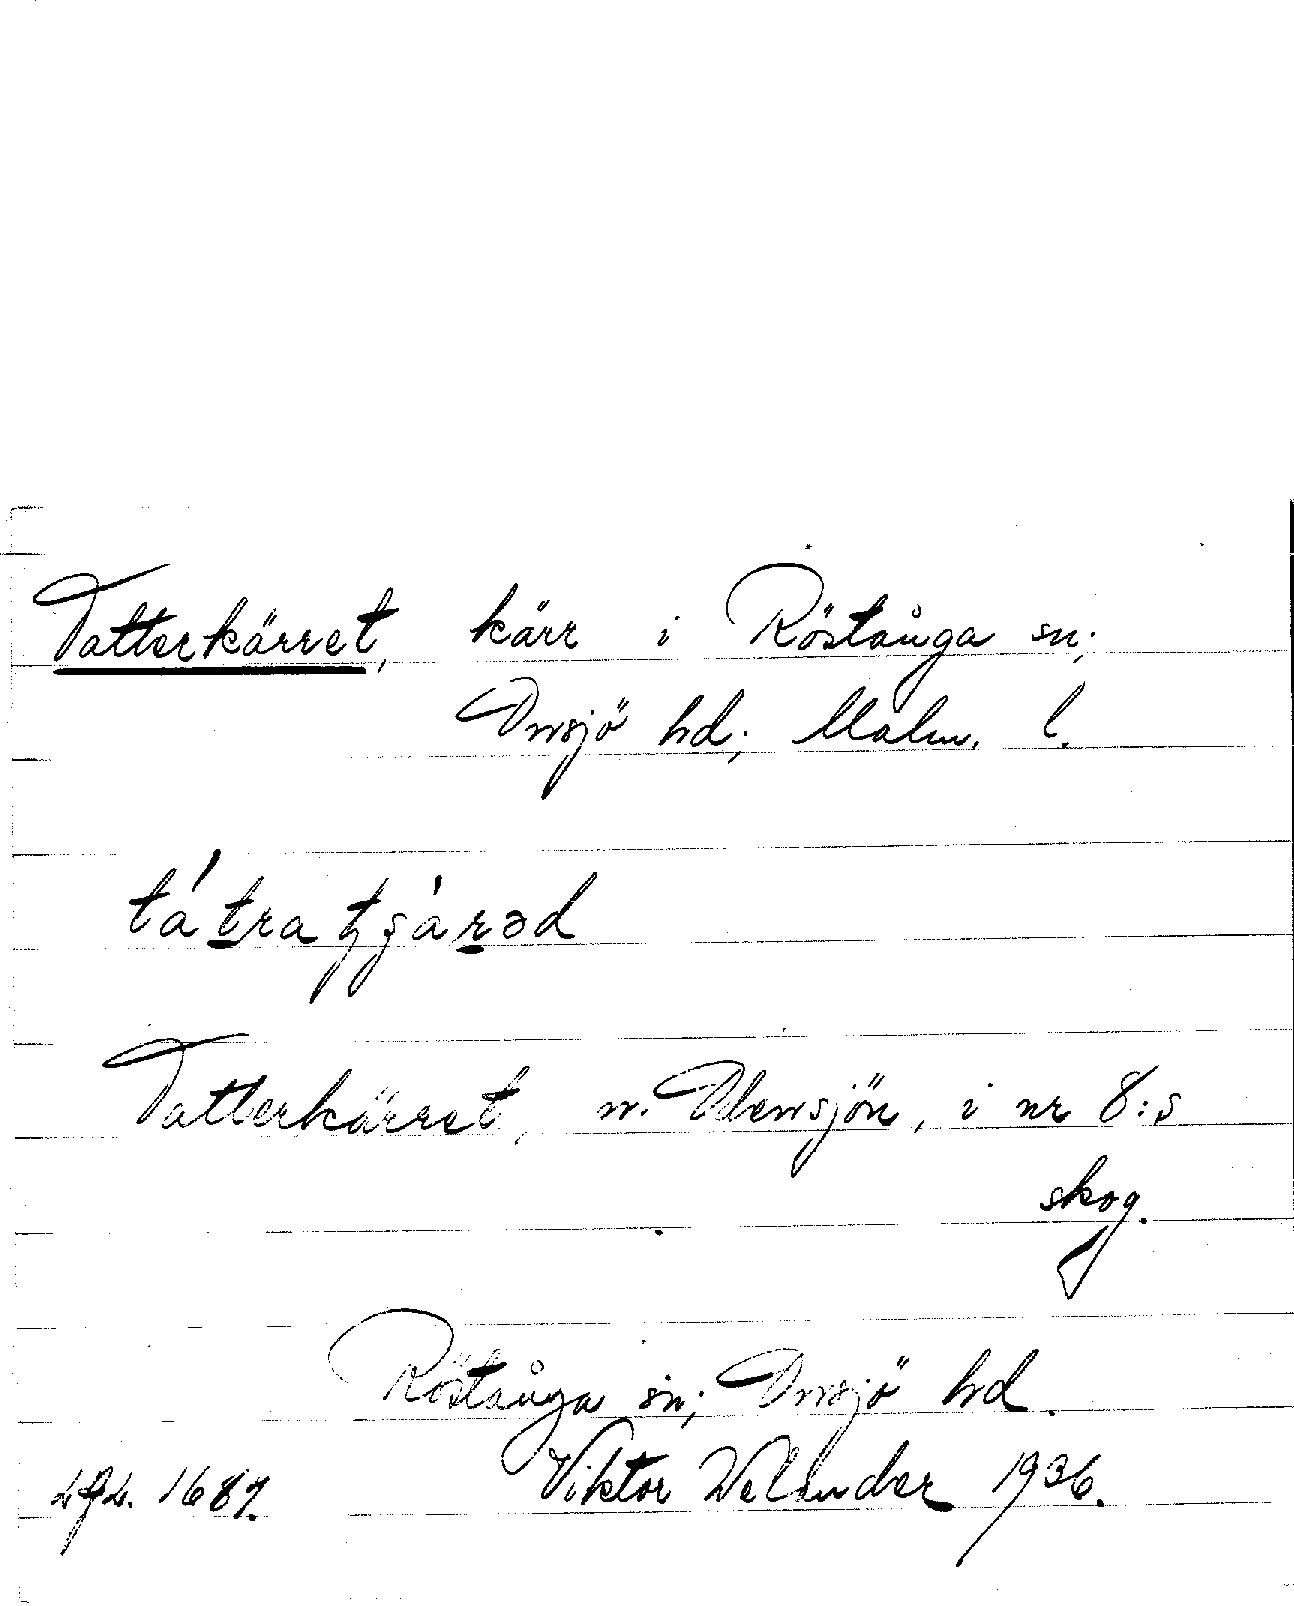 Tatterkärret, kärr i Röstånga sn;
Onsjö hd; Malm. l.
tátratʒàrəd
Tatterkärret, n. Odensjön, i nr 8:s
skog.
Röstånga sn; Onsjö hd.
Viktor Welander 1936.
1687.